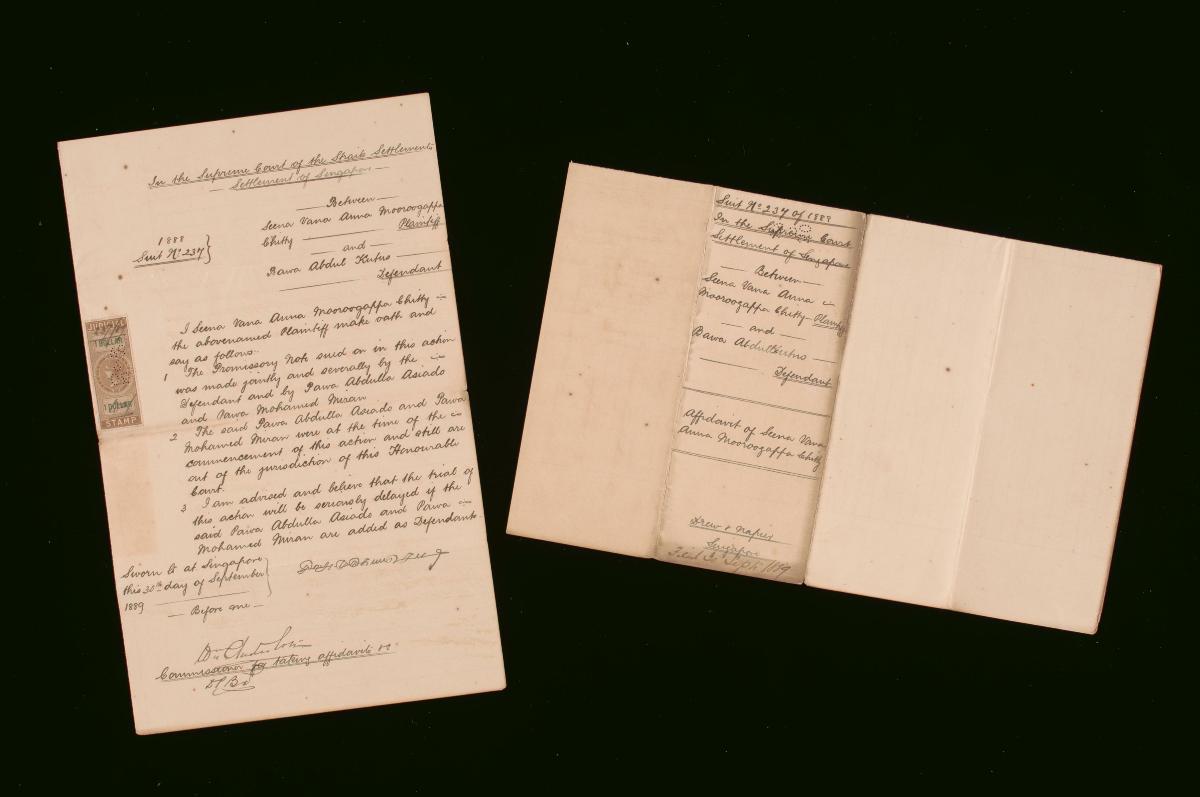 In the Supreme Court of the Straits Settlements
— Settlement of Singapore —
— Between —
1888
Suit No. 237
Seena Vana Anna Mooroogappa
Chitty — Plaintiff
— and —
Bawa Abdul Kutus —
— Defendant
JUDICIAL
1 DOLLAR
1 DOLLAR
STAMP
I Seena Vana Anna Mooroogappa Chitty
the abovenamed Plaintiff make oath and
say as follows:
1 The Promissory Note sued on in this action
was made jointly and severally by the
Defendant and by Pawa Abdulla Asiado
and Vawa Mohamed Miran
2 The said Pawa Abdulla Asiado and Pawa
Mohamed Miran were at the time of the
commencement of this action and still are
out of the jurisdiction of this Honourable
Court.
3 I am advised and believe that the trial of
this action will be seriously delayed if the
said Pawa Abdulla Asiado and Pawa
Mohamed Miran are added as Defendants
Sworn &c at Singapore
this 30th day of September
1889 —
— Before me —
Commissioner for taking affidavits &c
Suit No. 237 of 1888
In the Supreme Court
Settlement of Singapore
— Between —
Seena Vana Anna
Mooroogappa Chitty Plaintiff
— and —
Bawa Abdul Kutus —
— Defendant
Affidavit of Seena Vana
Anna Mooroogappa Chitty
Drew & Napier
Singapore
Filed 30 Sept. 1889